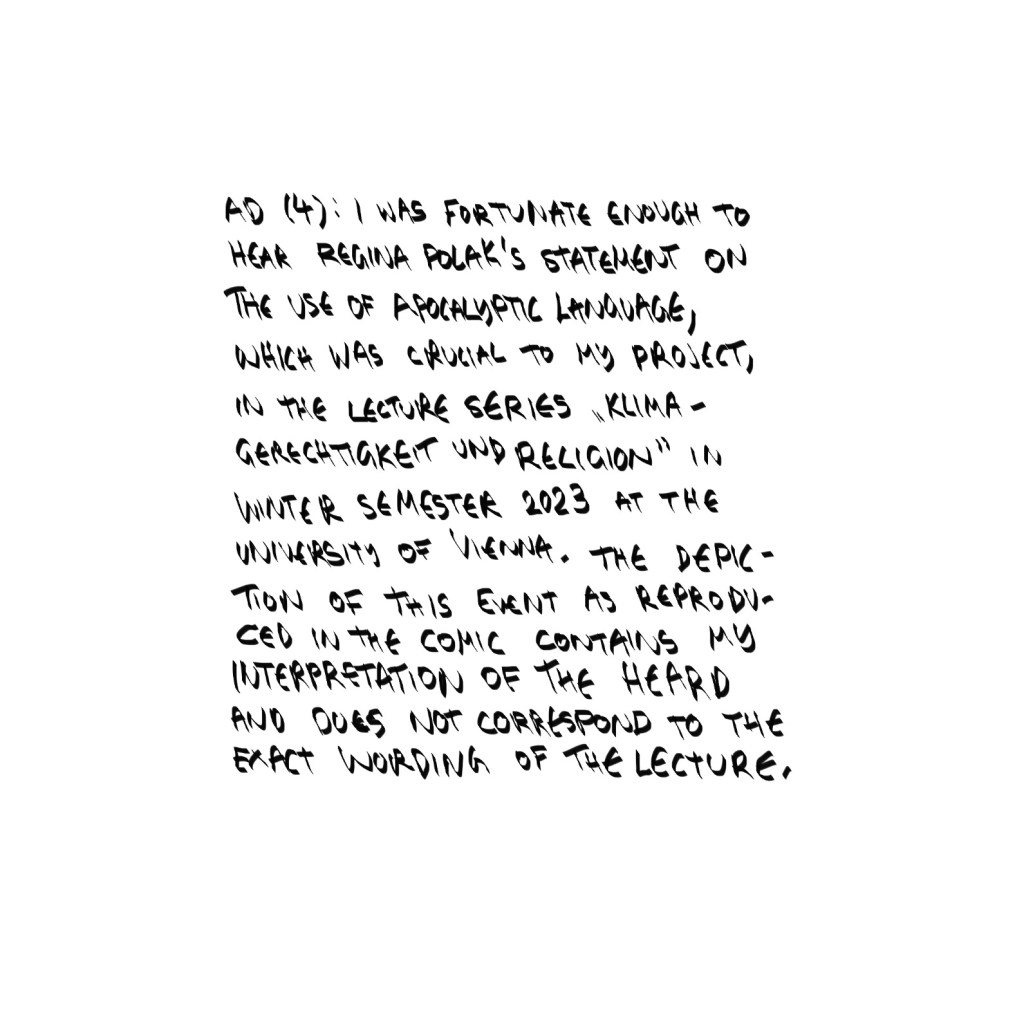 AD (4): I WAS FORTUNATE ENOUGH TO
HEAR REGINA POLAK'S STATEMENT ON
THE USE OF APOCALYPTIC LANGUAGE,
WHICH WAS CRUCIAL TO MY PROJECT,
IN THE LECTURE SERIES „KLIMA-
GERECHTIGKEIT UND RELIGION” IN
WINTER SEMESTER 2023 AT THE
UNIVERSITY OF VIENNA. THE DEPIC-
TION OF THIS EVENT AS REPRODU-
CED IN THE COMIC CONTAINS MY
INTERPRETATION OF THE HEARD
AND DOES NOT CORRESPOND TO THE
EXACT WORDING OF THE LECTURE.